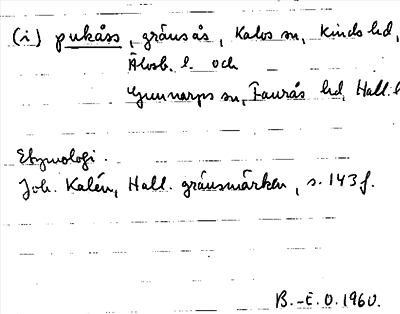 (i) pukåss, gränsås, Kalvs sn, Kinds hd,
Älvsb. l. och
Gunnarps sn, Faurås hd, Hall. l
Etymologi.
Joh. Kalén, Hall. gränsmärken, s. 143 f.
B.-E. O. 1960.